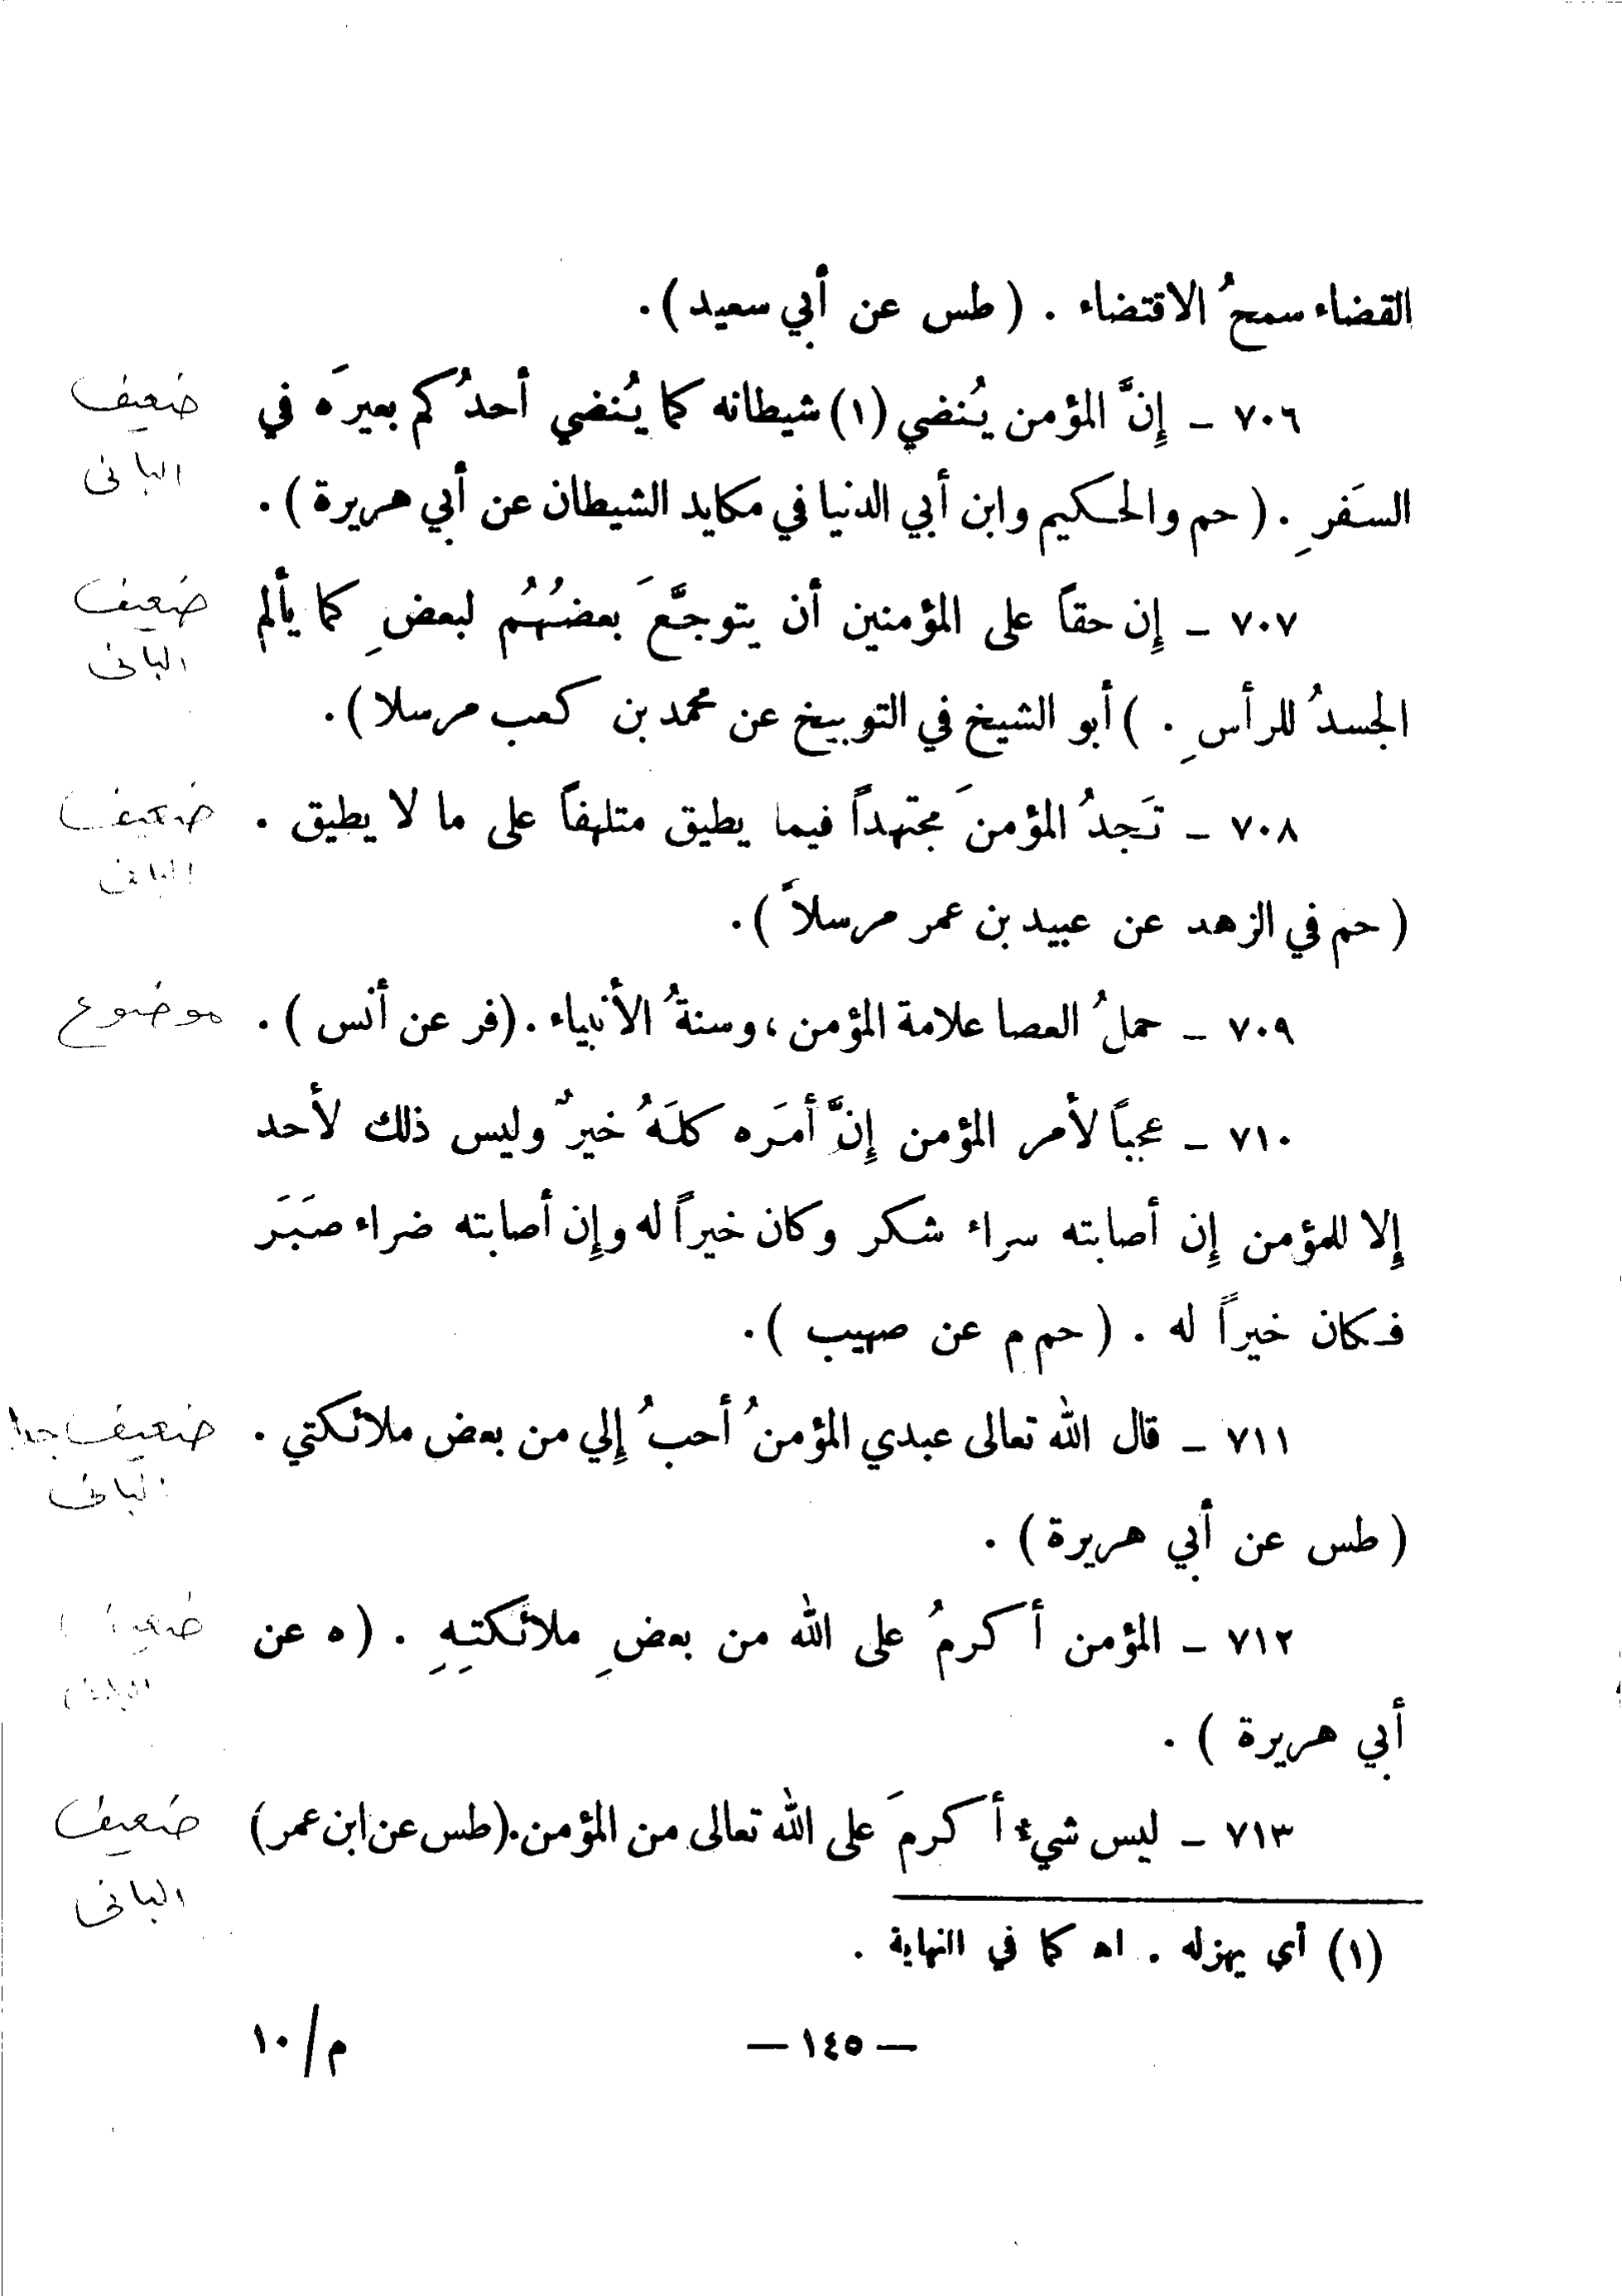 القضاء سمحُ الاقتضاء . ( طس عن أبي سعيد ) .
٧٠٦ – إِنَّ المؤمن يُنضي (١) شيطانه كما يُنضي أحدُكم بعيرَه في
ضعيف
البانى
السَفرِ . ( حم والحكيم وابن أبي الدنيا في مكايد الشيطان عن أبي هريرة ) .
٧٠٧ – إِن حقاً على المؤمنين أن يتوجَّعَ بعضُهُم لبعضٍ كما يألم
ضعيف
البانى
الجسدُ للرأسِ . ) أبو الشيخ في التوبيخ عن محمد بن كعب مرسلا ) .
٧٠٨ – تَجدُ المؤمنَ مجتهداً فيما يطيق متلهفاً على ما لا يطيق .
ضعيف
البانى
( حم في الزهد عن عبيد بن عمر مرسلاً ) .
٧٠٩ – حملُ العصا علامة المؤمن ، وسنةُ الأنبياء . (فر عن أنس ) .
موضوع
٧١٠ – عجباً لأمر المؤمن إِنَّ أمَره كلَهُ خيرٌ وليس ذلك لأحد
إِلا للمؤمن إِن أصابته سراء شكر وكان خيراً له وإِن أصابته ضراء صَبَرَ
فكان خيراً له . ( حم م عن صهيب ) .
٧١١ – قال الله تعالى عبدي المؤمنُ أحبُ إِلي من بعض ملائكتي .
ضعيف جدا
البانى
( طس عن أبي هريرة ) .
٧١٢ – المؤمن أكرمُ على الله من بعضِ ملائكتِهِ . ( ه عن
ضعيف
البانى
أبي هريرة ) .
٧١٣ – ليس شيء أكرمَ على الله تعالى من المؤمن . (طس عن ابن عمر)
ضعيف
البانى
(١) أي يهزله . اه كما في النهاية .
– ١٤٥ –
م/١٠